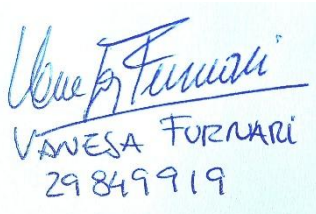 Vane Furnari
VANESA FURNARI
29849919